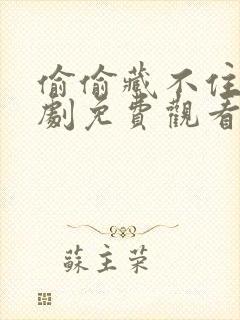 偷偷藏不住
劇免費觀看
蘇主荣